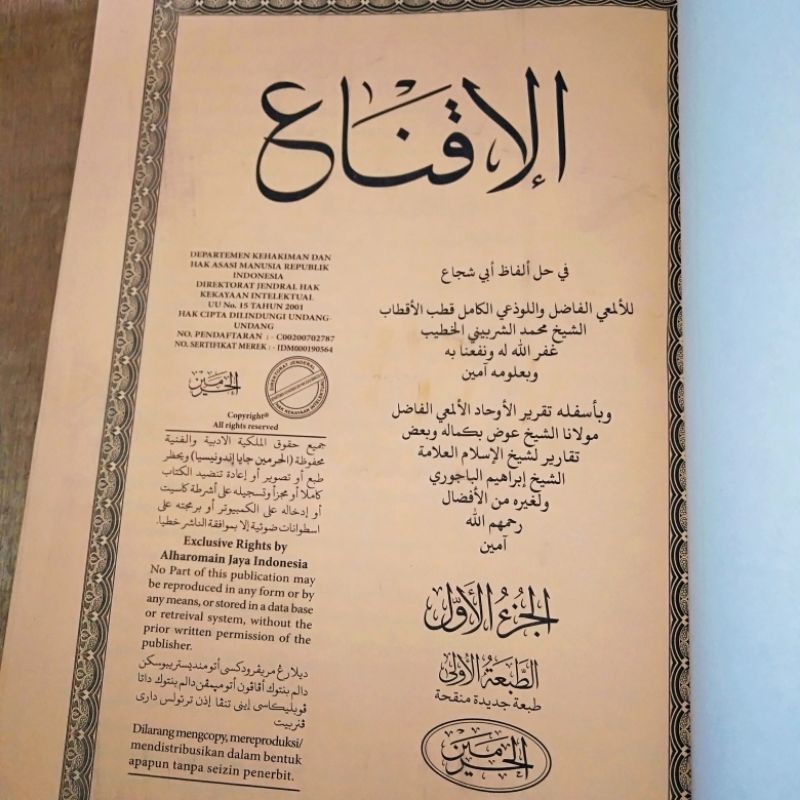 الإقناع
في حل ألفاظ أبي شجاع
للألمعي الفاضل واللوذعي الكامل قطب الأقطاب
الشيخ محمد الشربيني الخطيب
غفر الله له ونفعنا به
وبعلومه آمين
وبأسفله تقرير الأوحاد الألمعي الفاضل
مولانا الشيخ عوض بكماله وبعض
تقارير لشيخ الإسلام العلامة
الشيخ إبراهيم الباجوري
ولغيره من الأفضال
رحمهم الله
آمين
الجزء الأول
الطبعة الأولى
طبعة جديدة منقحة
الحرمين
DEPARTEMEN KEHAKIMAN DAN
HAK ASASI MANUSIA REPUBLIK
INDONESIA
DIREKTORAT JENDRAL HAK
KEKAYAAN INTELEKTUAL
UU No. 15 TAHUN 2001
HAK CIPTA DILINDUNGI UNDANG-
UNDANG
NO. PENDAFTARAN : - C00200702787
NO. SERTIFIKAT MEREK : - IDM000190564
الحرمين
DIREKTORAT JENDERAL
HAK KEKAYAAN INTELEKTUAL
Copyright®
All rights reserved
جميع حقوق الملكية الادبية والفنية
محفوظة (الحرمين جايا إندونيسيا) ويحظر
طبع أو تصوير أو إعادة تنضيد الكتاب
كاملا أو مجزأ وتسجيله على أشرطة كاسيت
أو إدخاله على الكمبيوتر أو برمجته على
اسطوانات ضوئية إلا بموافقة الناشر خطيا.
Exclusive Rights by
Alharomain Jaya Indonesia
No Part of this publication may
be reproduced in any form or by
any means, or stored in a data base
or retreival system, without the
prior written permission of the
publisher.
ديلارغ مريفرودكسى أتو منديستريبوسكن
دالم بنتوك أفاقون أتو ميمفن دالم بنتوك داتا
ڤوبليكاسى إينى تنڤا إذن ترتولس دارى
ڤنربيت
Dilarang mengcopy, mereproduksi/
mendistribusikan dalam bentuk
apapun tanpa seizin penerbit.